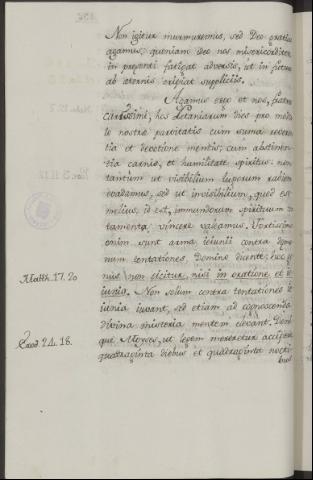 Non igitur murmuremus, sed Deo gratias
agamus; quoniam ideo nos misericorditer
in præsenti fatigat adversis, ut in futuro
ab æternis eripiat suppliciis.
Agamus ergo et nos, fratres
carissimi, hos Letaniarum dies pro modu
lo nostræ parvitatis cum summa reveren
tia et devotione mentis; cum abstinen
tia carnis, et humilitate spiritus: non
tantum ut visibilium luporum rabiem
evadamus, sed ut invisibilium, quod est
melius, id est, immundorum spirituum ten
tamenta vincere valeamus. Fortissima
enim sunt arma jejunii contra dæmo
num tentationes, Domino dicente: hoc ge
Matth. 17. 20
nus non ejicitur, nisi in oratione et je
junio. Non solum contra tentationes je
junia juvant, sed etiam ad cognoscenda
divina mysteria mentem elevant. Deni
Exod. 24. 18.
que Moyses, ut legem mereretur accipere
quadraginta diebus et quadraginta nocti
bus